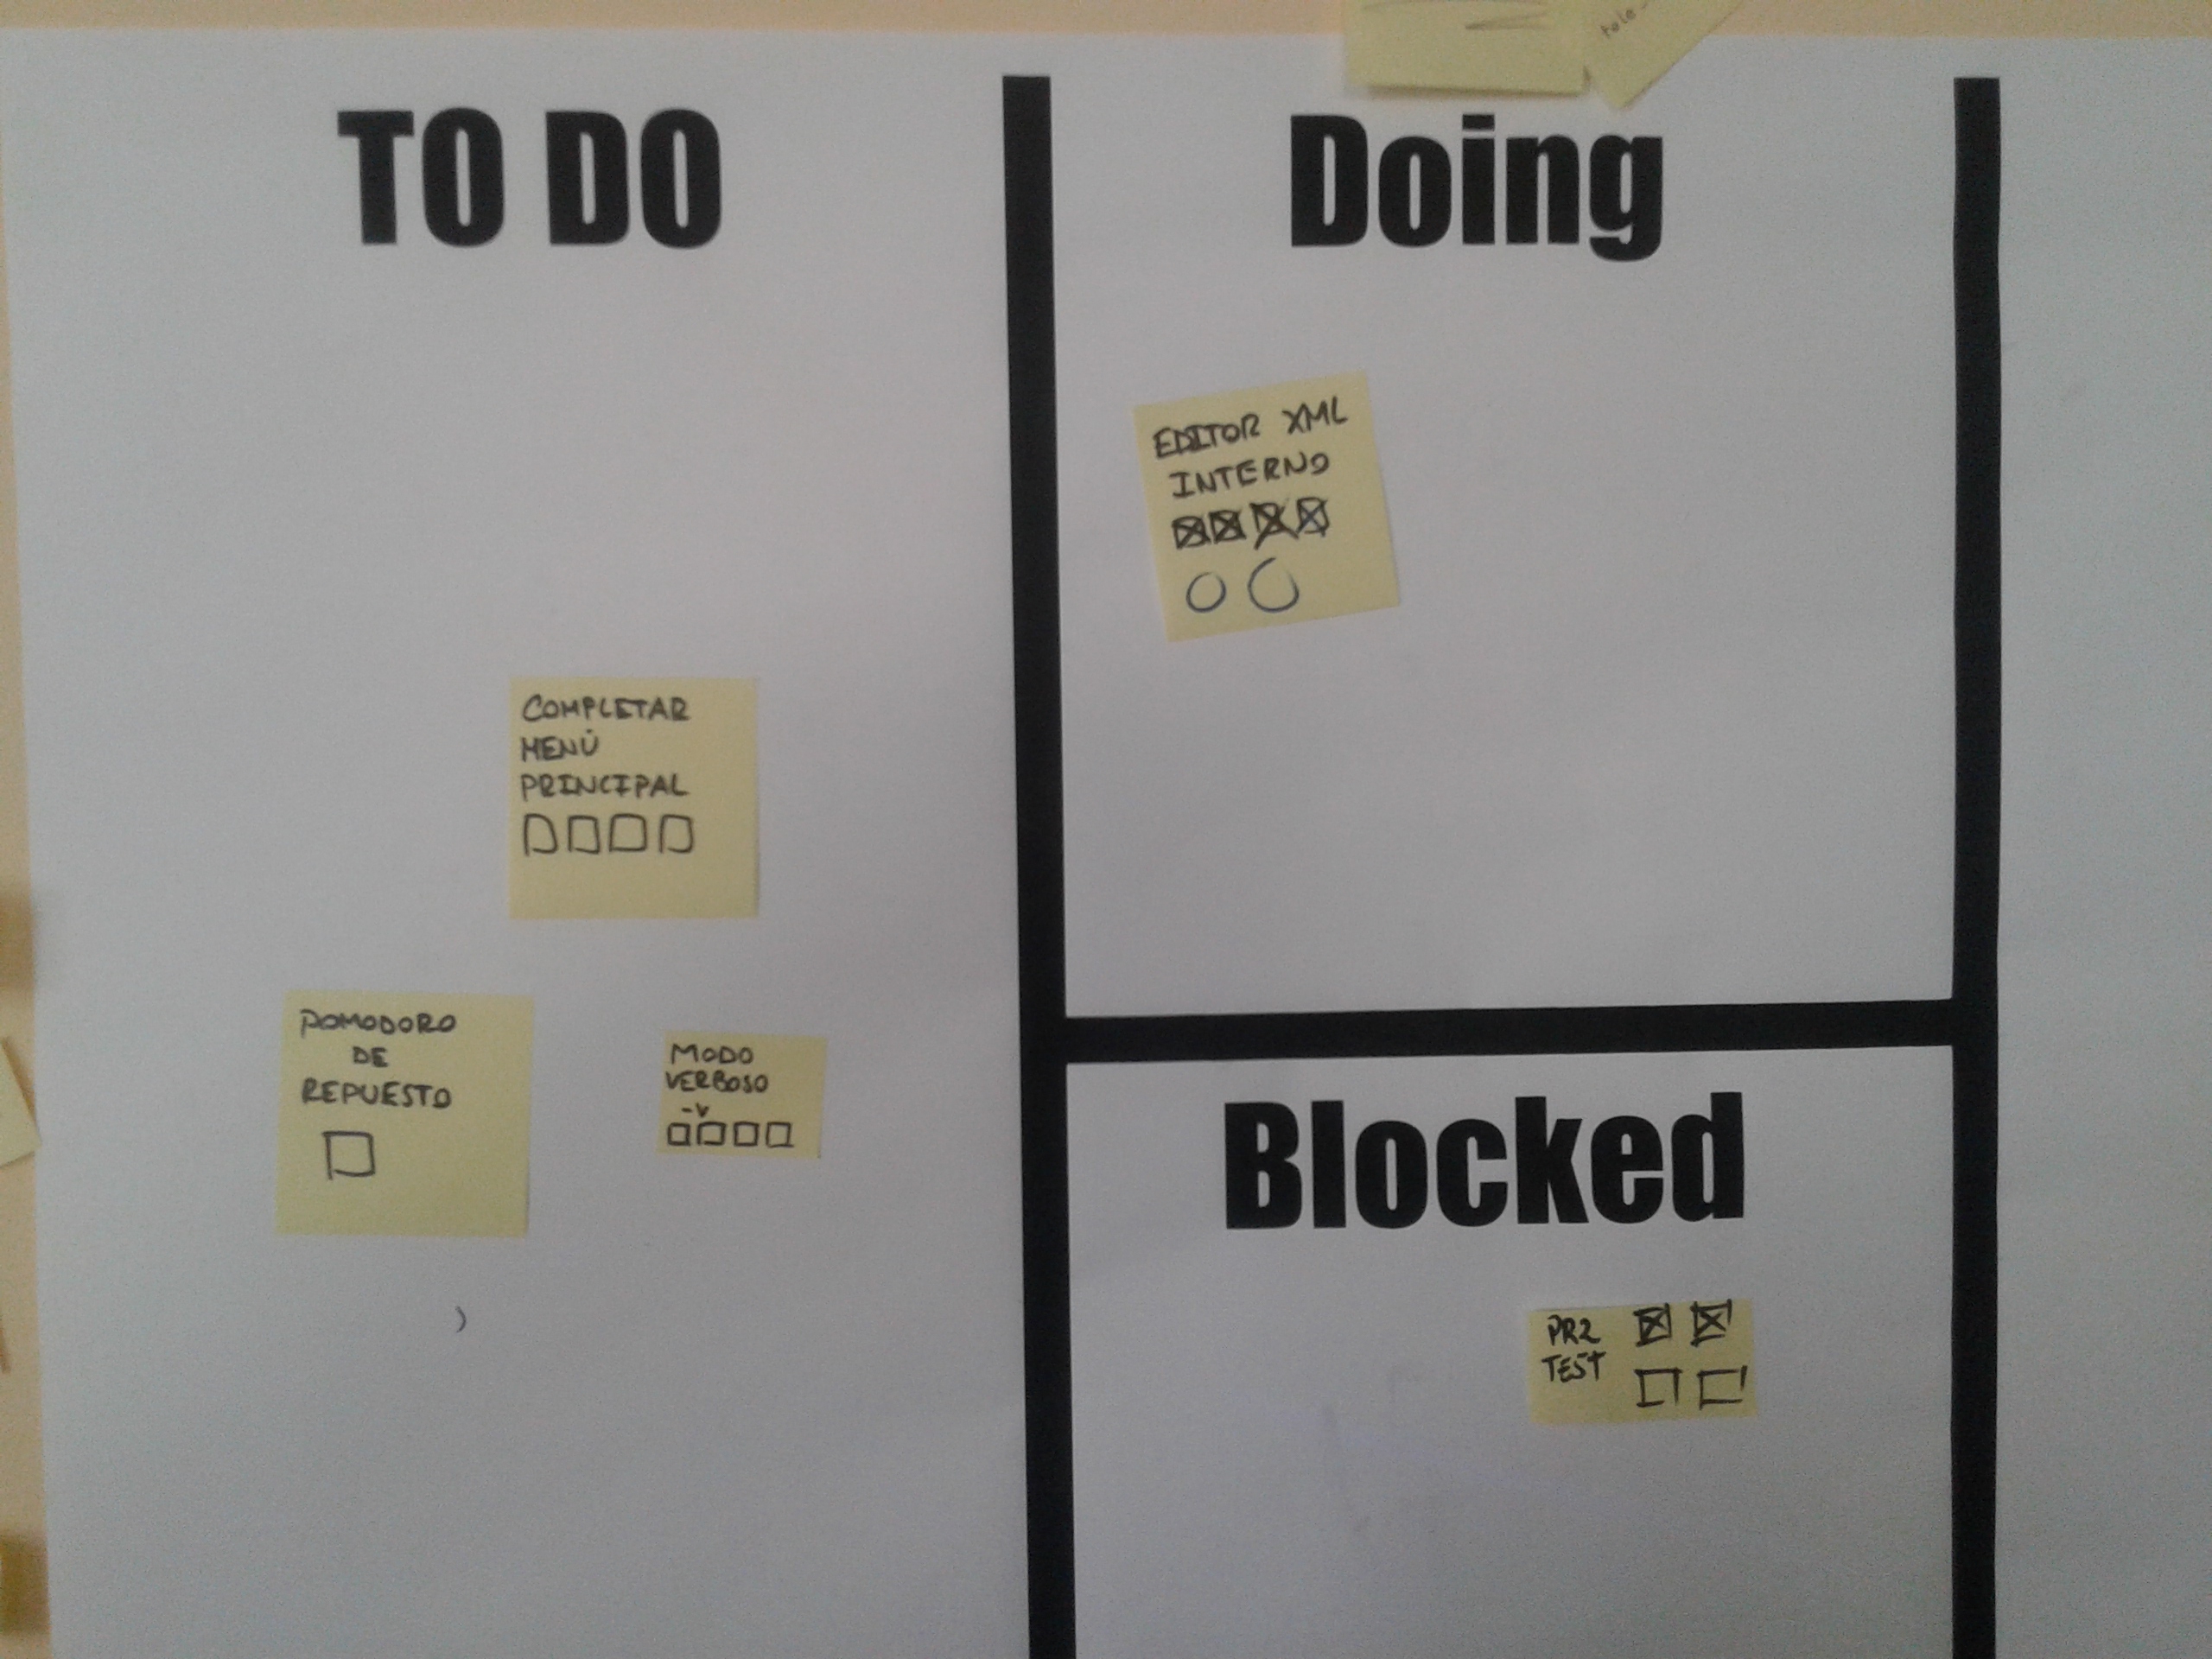 TO DO
COMPLETAR
MENÚ
PRINCIPAL
POMODORO
DE
REPUESTO
MODO
VERBOSO
-v
Doing
EDITOR XML
INTERNO
Blocked
PR2
TEST